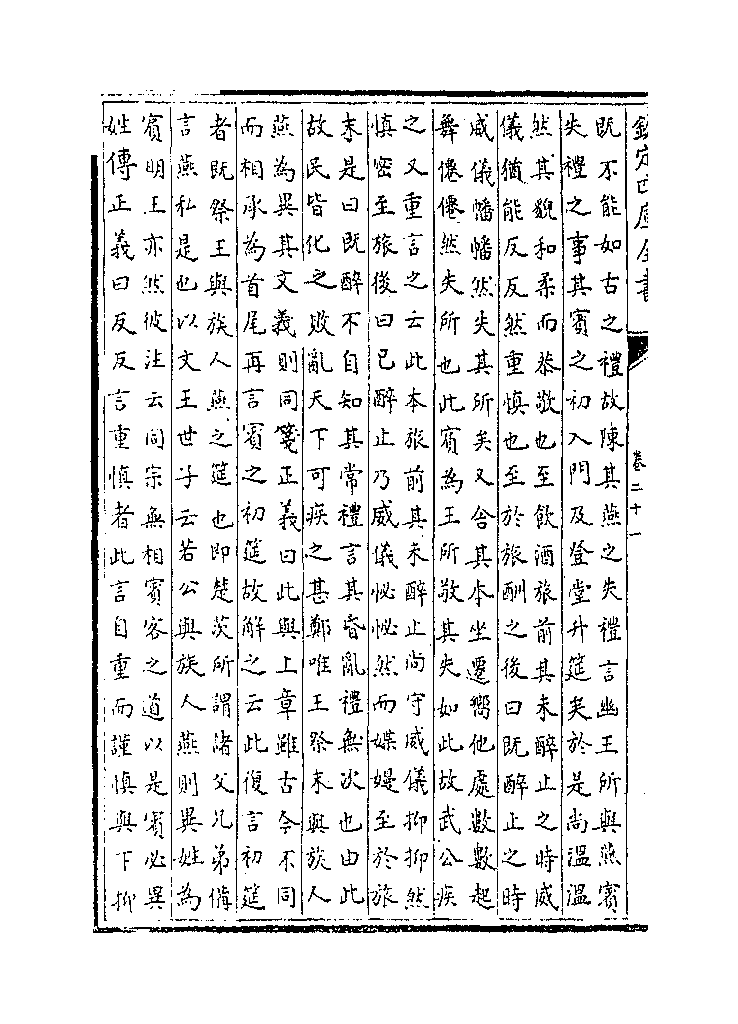 欽定四庫全書
卷二十一
既不能如古之禮故陳其燕之失禮言幽王所與燕賓
失禮之事其賓之初入門及登堂升筵矣於是尚溫溫
然其貌和柔而恭敬也至飲酒旅前其未醉止之時威
儀猶能反反然重慎也至於旅酬之後曰既醉止之時
威儀幡幡然失其所矣又舍其本坐遷嚮他處數數起
舞僊僊然失所也此賓為王所敬其失如此故武公疾
之又重言之云此本旅前其未醉止尚守威儀抑抑然
慎密至旅後曰已醉止乃威儀怭怭然而媟嫚至於旅
末是曰既醉不自知其常禮言其昏亂禮無次也由此
故民皆化之敗亂天下可疾之甚鄭唯王祭末與族人
燕為異其文義則同箋正義曰此與上章雖古今不同
而相承為首尾再言賓之初筵故解之云此復言初筵
者既祭王與族人燕之筵也即楚茨所謂諸父兄弟備
言燕私是也以文王世子云若公與族人燕則異姓為
賓明王亦然彼注云同宗無相賓客之道以是賓必異
姓傳正義曰反反言重慎者此言自重而謹慎與下抑